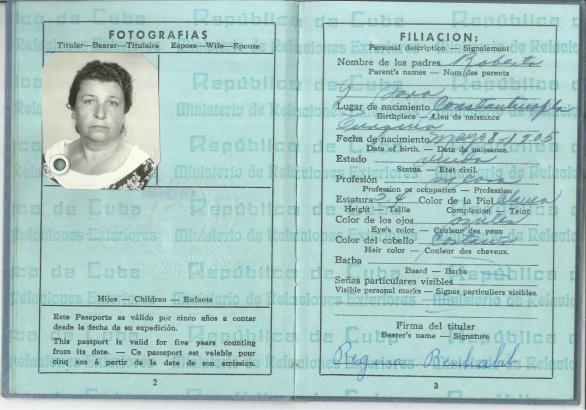 FOTOGRAFIAS
Titular—Bearer—Titulaire Esposa—Wife—Epouse
Hijos — Children — Enfants
Este Pasaporte es válido por cinco años a contar
desde la fecha de su expedición.
This passport is valid for five years counting
from its date. — Ce passeport est valable pour
cinq ans á partir de la date de son emission.
2
FILIACION:
Personal description — Signalement
Nombre de los padres Roberto
Parent's names — Nom des parents
y Sara
Lugar de nacimiento Constantinopla
Birthplace — Lieu de naissance
Fecha de nacimiento mayo 8-1905
Date of birth. — Date de naissance.
Estado viuda
Status. — Etat civil.
Profesión su casa
Profession or occupation — Profession
Estatura 5.4 Color de la Piel blanca
Height — Taille Complexion — Teint
Color de los ojos azules
Eye's color — Couleur des yeux
Color del cabello Castaño
Hair color — Couleur des cheveux.
Barba
Beard — Barbe
Señas particulares visibles
Visible personal marks — Signes particuliers visibles.
Firma del titular
Bearer's name — Signature
Regina
3
República de Cuba
Ministerio de Relaciones Exteriores